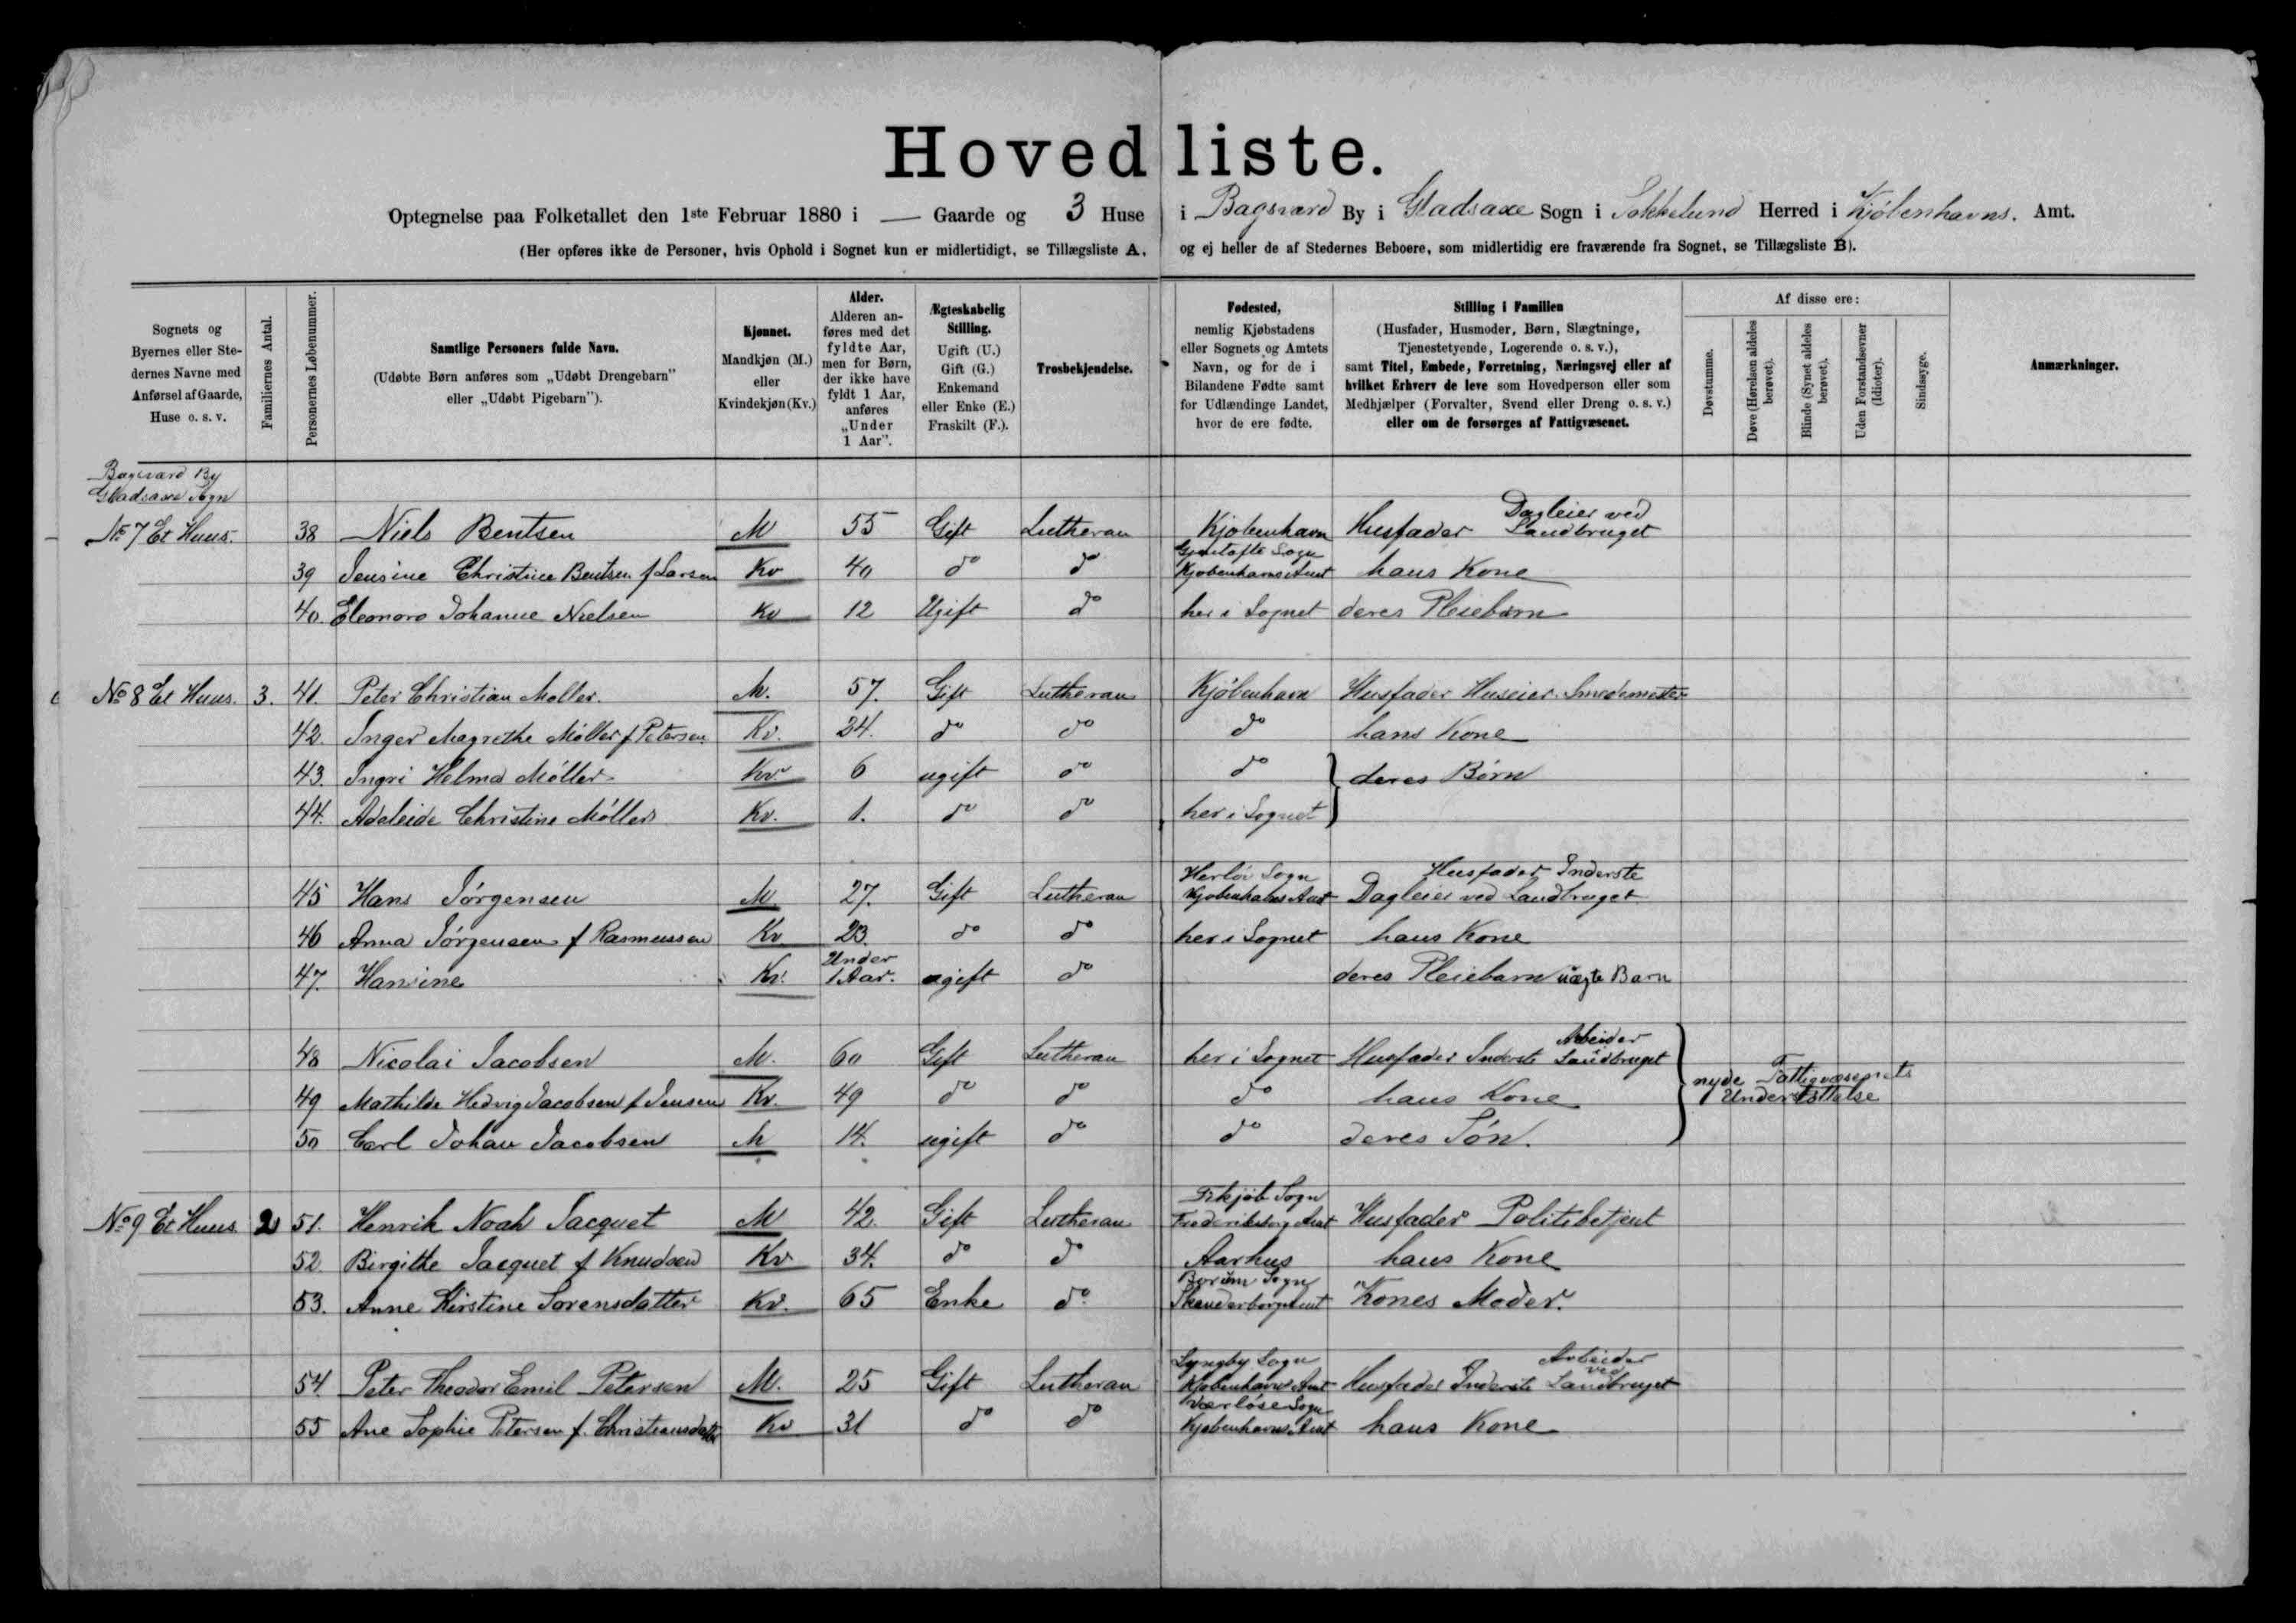 Hovedliste.
Optegnelse paa Folketallet den 1ste Februar 1880 i — Gaarde og 3 Huse i Bagsværd By i Gladsaxe Sogn i Sokkelund Herred i Kjøbenhavns. Amt.
(Her opføres ikke de Personer, hvis Ophold i Sognet kun er midlertidigt, se Tillægsliste A, og ej heller de af Stedernes Beboere, som midlertidig ere fraværende fra Sognet, se Tillægsliste B).
Sognets og Byernes eller Stedernes Navne med Anførsel af Gaarde, Huse o. s. v.
Familiernes Antal.
Personernes Løbenummer.
Samtlige Personers fulde Navn.
(Udøbte Børn anføres som „Udøbt Drengebarn" eller „Udøbt Pigebarn").
Kjønnet.
Mandkjøn (M.) eller Kvindekjøn (Kv.)
Alder.
Alderen anføres med det fyldte Aar, men for Børn, der ikke have fyldt 1 Aar, anføres „Under 1 Aar".
Ægteskabelig Stilling.
Ugift (U.) Gift (G.) Enkemand eller Enke (E.) Fraskilt (F.).
Trosbekjendelse.
Fødested,
nemlig Kjøbstadens eller Sognets og Amtets Navn, og for de i Bilandene Fødte samt for Udlændinge Landet, hvor de ere fødte.
Stilling i Familien
(Husfader, Husmoder, Børn, Slægtninge, Tjenestetyende, Logerende o. s. v.),
samt Titel, Embede, Forretning, Næringsvej eller af hvilket Erhverv de leve som Hovedperson eller som Medhjælper (Forvalter, Svend eller Dreng o. s. v.) eller om de forsørges af Fattigvæsenet.
Af disse ere:
Døvstumme.
Døve (Hørelsen aldeles berøvet).
Blinde (Synet aldeles berøvet).
Uden Forstandsevner (Idioter).
Sindssyge.
Anmærkninger.
Bagsværd By
Gladsaxe Sogn
No 7 Et Huus. 38 Niels Bentsen M 55 Gift Lutheran Kjøbenhavn Husfader Dagleier ved Landbruget
39 Jensine Christine Bentsen f Larsen Kv 40 do do Gjentofte Sogn Kjøbenhavns Amt hans Kone
40. Eleonora Johanne Nielsen Kv 12 Ugift do her i Sognet deres Pleiebarn
No 8 Et Huus. 3. 41. Peter Christian Møller. M. 57. Gift Lutheran Kjöbenhavn Husfader Huseier. Smedemester
42. Inger Magrethe Möller f Petersen Kv. 34. do do do hans Kone
43. Ingri Helma Möller Kv 6 ugift do do deres Börn
44. Adeleide Christine Möller Kv. 1. do do her i Sognet
45 Hans Jörgensen M. 27. Gift Lutheran Herlöv Sogn Kjøbenhavns Amt Husfader Inderste Dagleier ved Landbruget
46 Anna Jörgensen f Rasmussen Kv 23. do do her i Sognet hans Kone
47. Hansine Kv. Under 1 Aar. ugift do deres Pleiebarn uægte Barn
48 Nicolai Jacobsen M. 60 Gift Lutheran her i Sognet Husfader Inderste Arbeider Landbruget
49 Mathilde Hedvig Jacobsen f Jensen Kv. 49 do do do hans Kone nyde Fattigvæsenets Understöttelse
50 Carl Johan Jacobsen M 14. ugift do do deres Sön.
No 9 Et Huus 2 51. Henrik Noah Jacquet M 42. Gift Lutheran Sogn Frederiksborg Amt Husfader Politibetjent
52. Birgithe Jacquet f Knudsen Kv 34. do do Aarhus hans Kone
53. Anne Kirstine Sorensdatter Kv. 65 Enke do Borum Sogn Skanderborg Amt Kones Moder.
54 Peter Theodor Emil Petersen M. 25 Gift Lutheran Lyngby Sogn Kjøbenhavns Amt Husfader Inderste Arbeider ved Landbruget
55 Ane Sophie Petersen f. Christiansdatter Kv 31 do do Værlöse Sogn Kjøbenhavns Amt hans Kone